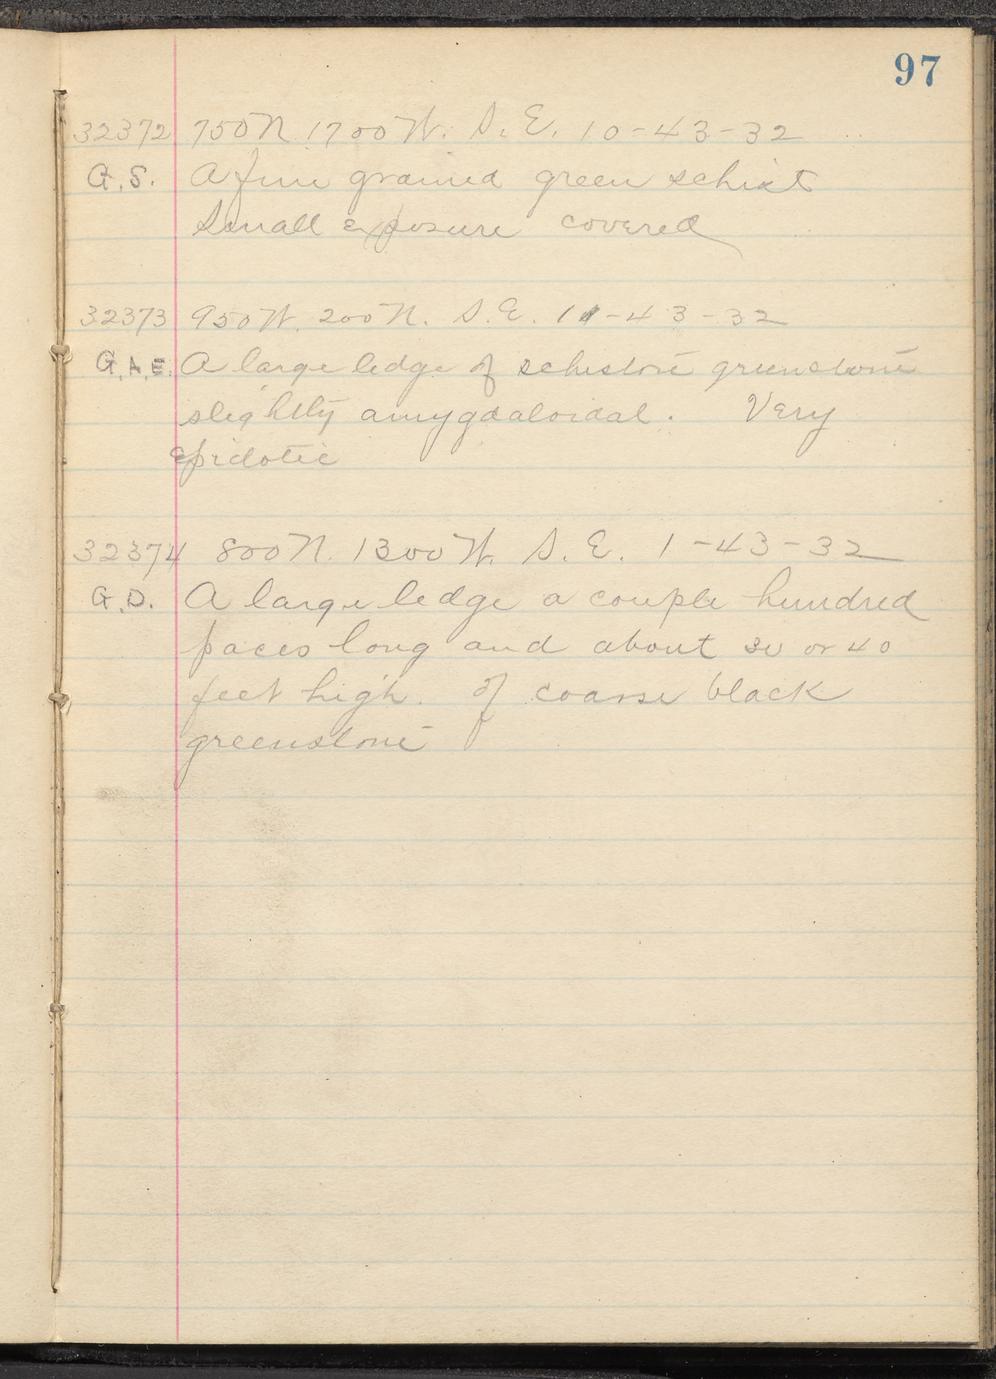 97
32372 750N 1700W. S.E. 10-43-32
G.S. A fine grained green schist
Small exposure covered
32373 950W. 200N. S.E. 11-43-32
G.A.E. A large ledge of schistose greenstone
slightly amygdaloidal. Very
epidotic
32374 800N. 1300W. S.E. 1-43-32
G.D. A large ledge a couple hundred
paces long and about 30 or 40
feet high. of coarse black
greenstone